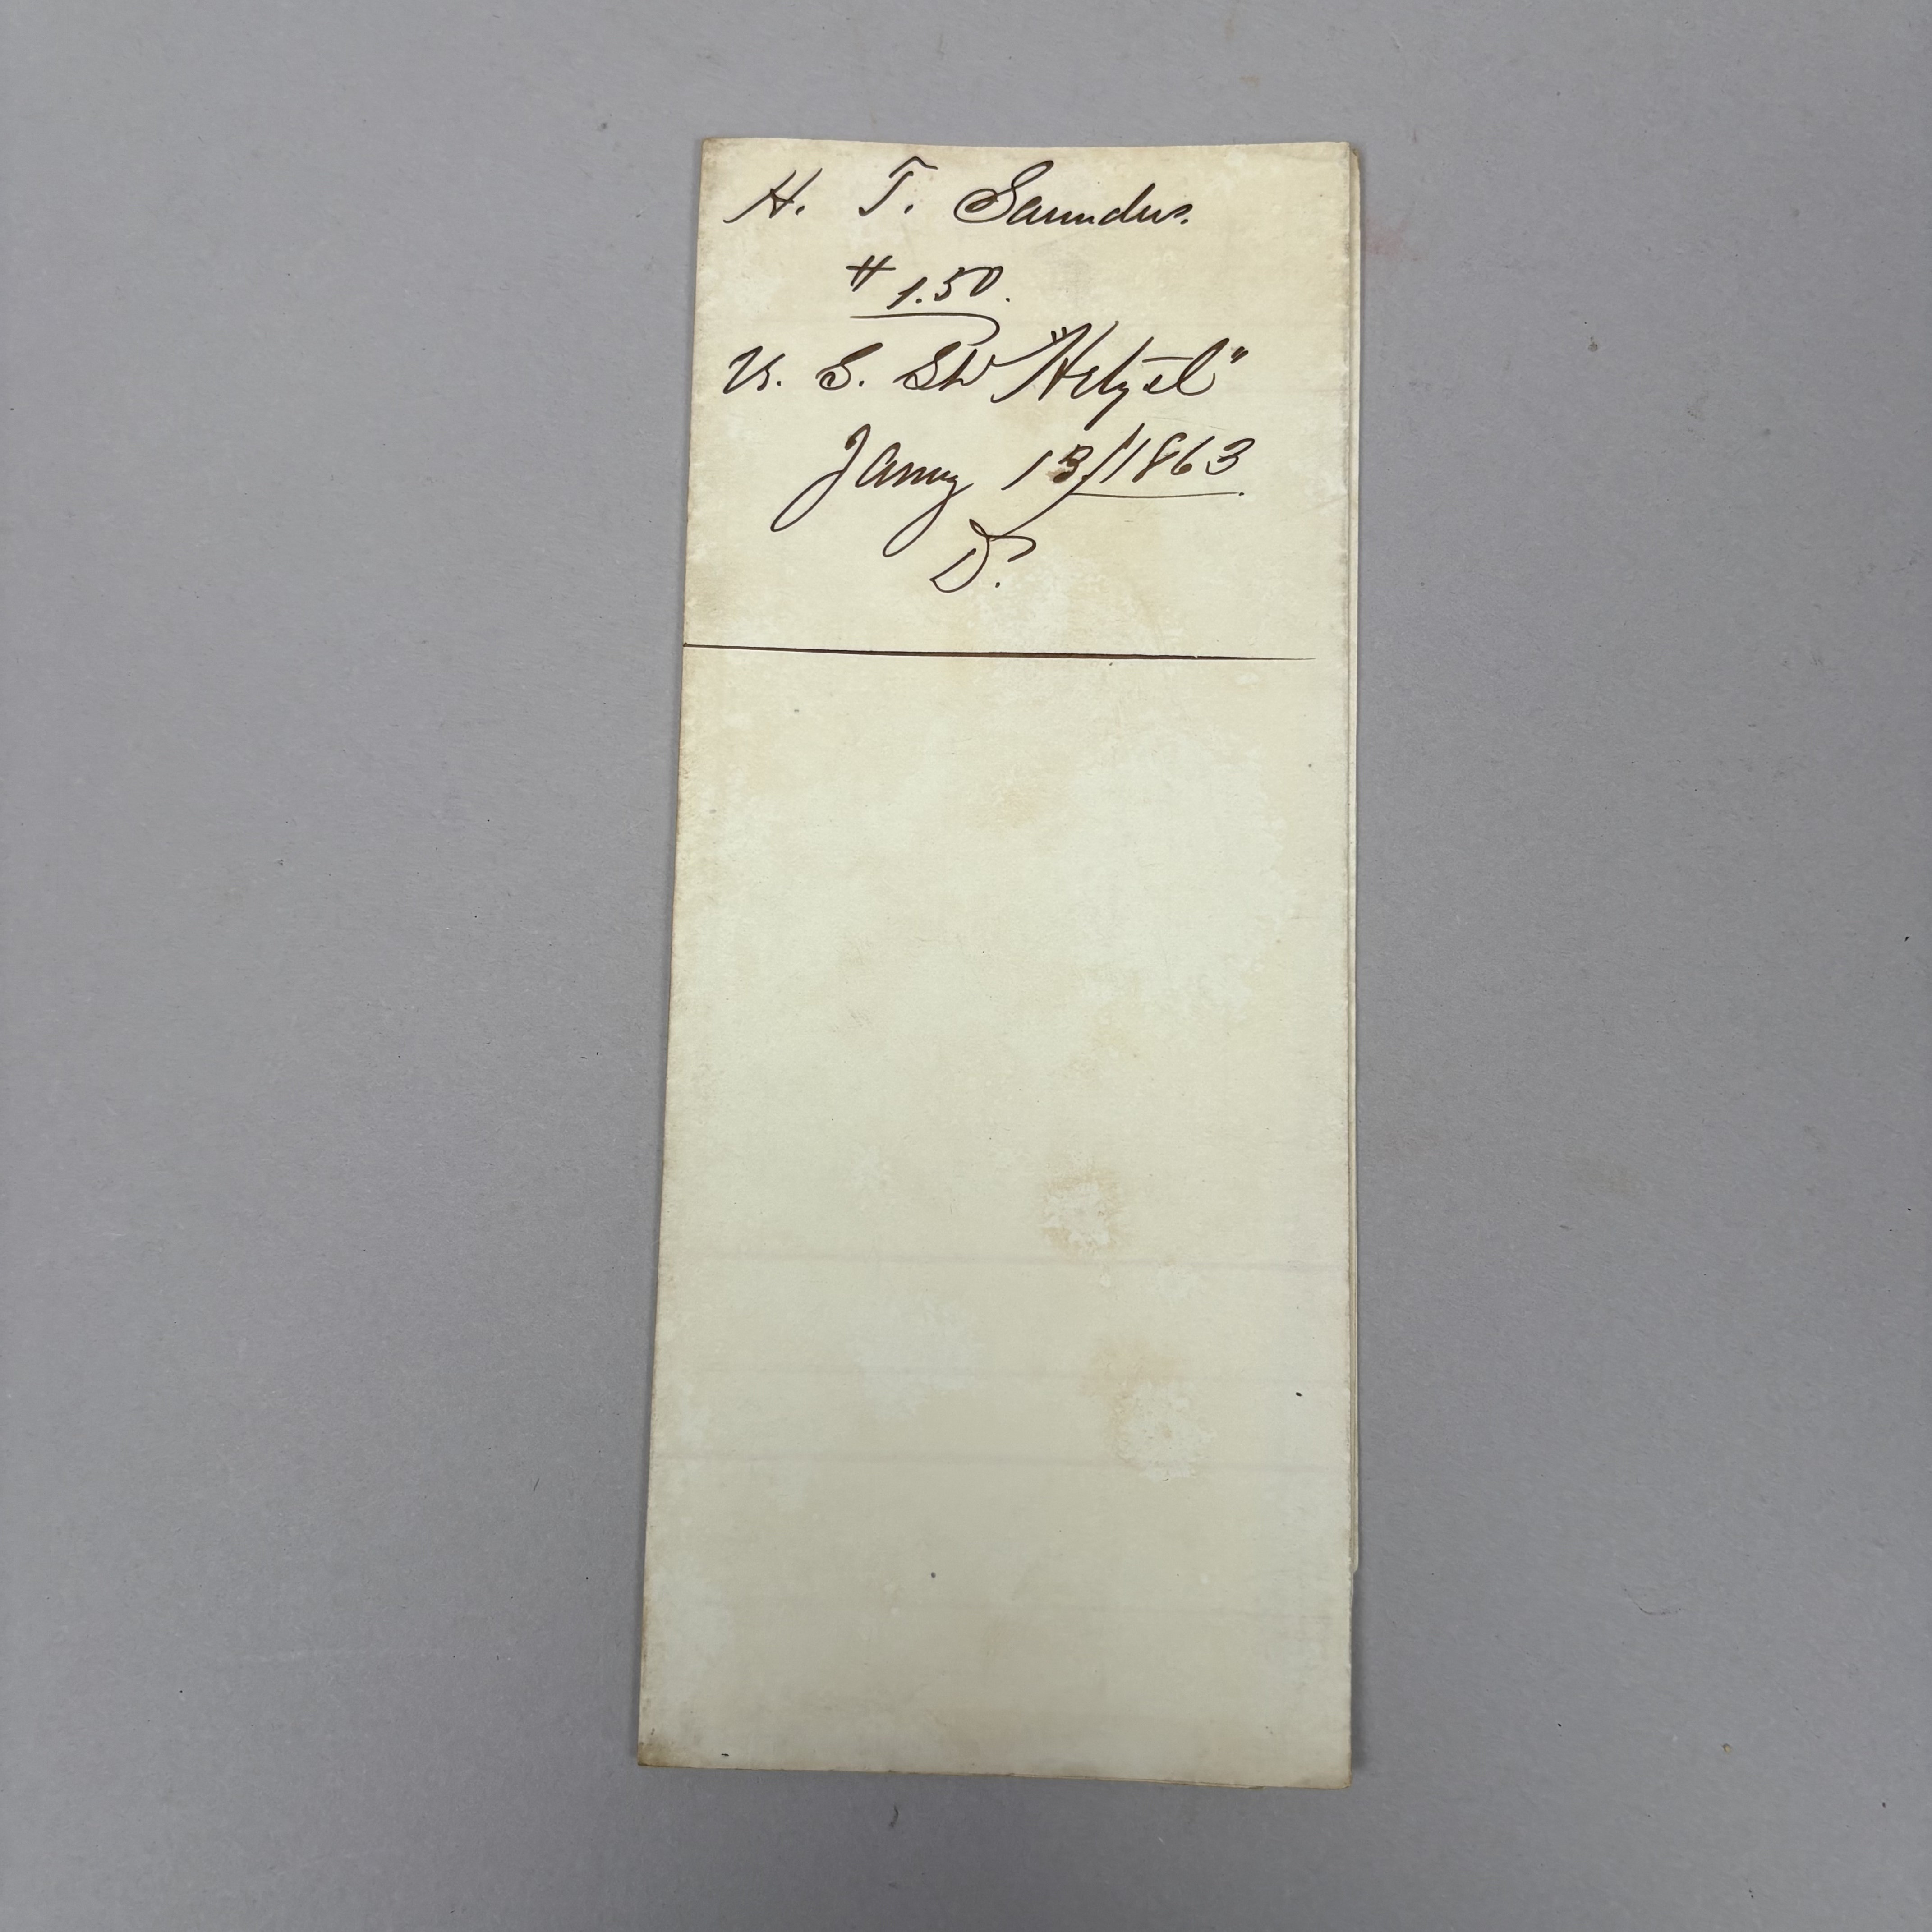 H. T. Saunders.
$1.50.
U. S. Str "Hetzel"
Jany 13/1863
D.